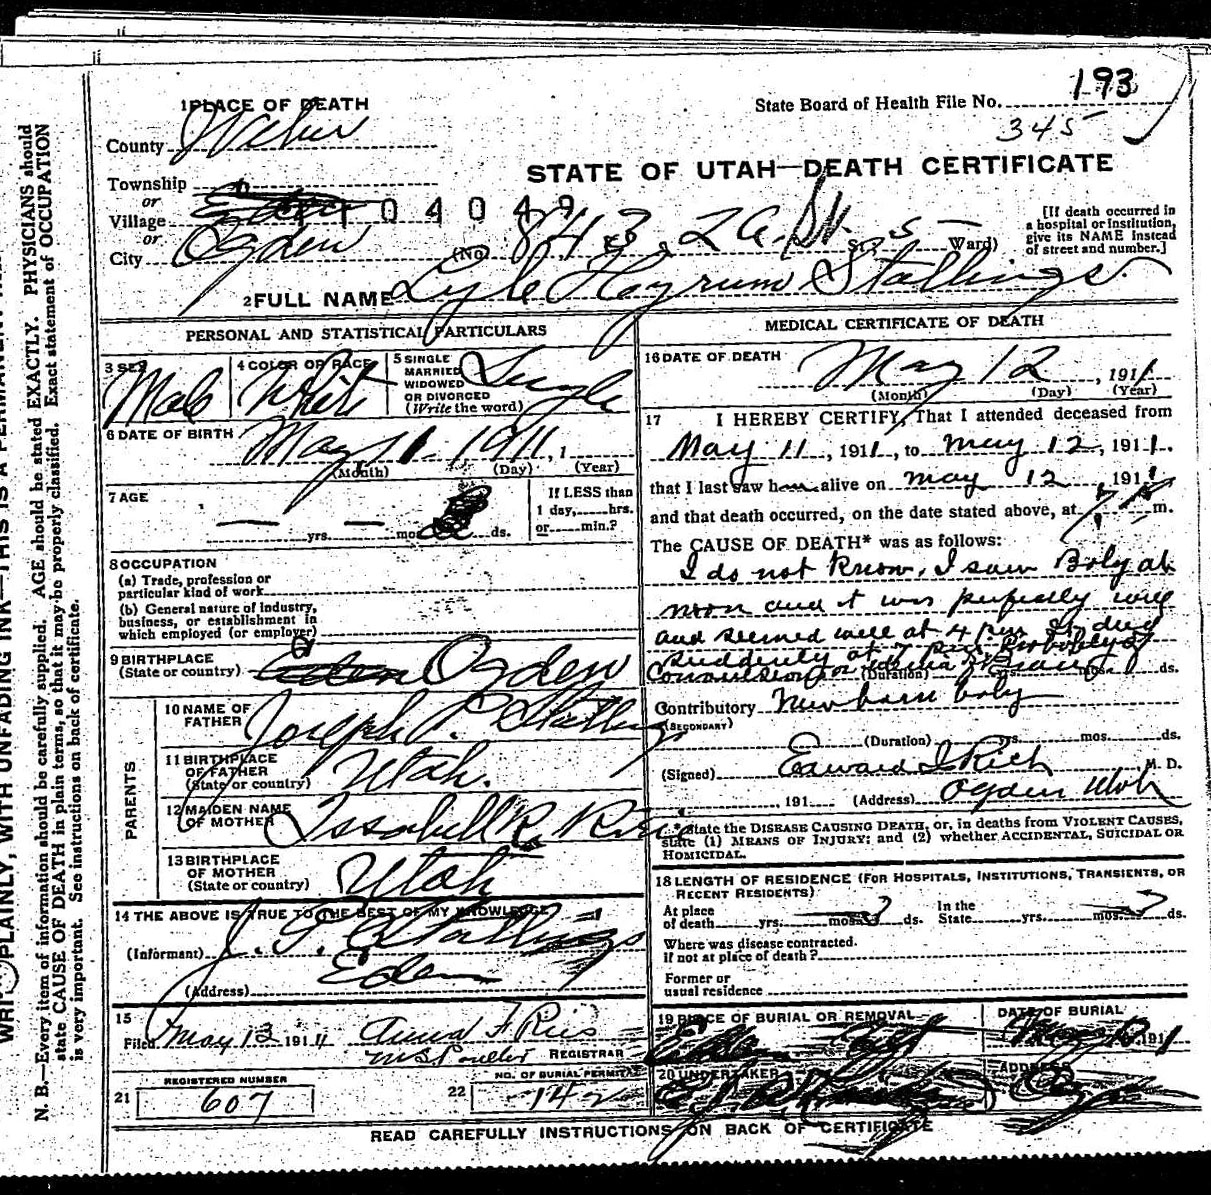 193
State Board of Health File No.
345
STATE OF UTAH—DEATH CERTIFICATE
1 PLACE OF DEATH
County Weber
Township
or
Village
or
City Ogden
104049
(No. 843, 2 St. 5 Ward)
[If death occurred in
a hospital or institution,
give its NAME instead
of street and number.]
2 FULL NAME Lyle Hyrum Stallings
PERSONAL AND STATISTICAL PARTICULARS
3 SEX Male
4 COLOR OR RACE White
5 SINGLE
MARRIED
WIDOWED
OR DIVORCED
(Write the word)
Single
6 DATE OF BIRTH May 11 1911, 1
(Month) (Day) (Year)
7 AGE
— yrs. — mos. ds.
If LESS than
1 day, hrs.
or min.?
8 OCCUPATION
(a) Trade, profession or
particular kind of work
(b) General nature of industry,
business, or establishment in
which employed (or employer)
9 BIRTHPLACE
(State or country) Ogden
PARENTS
10 NAME OF
FATHER Joseph P. Stallings
11 BIRTHPLACE
OF FATHER
(State or country) Utah.
12 MAIDEN NAME
OF MOTHER Issabell R.
13 BIRTHPLACE
OF MOTHER
(State or country) Utah
14 THE ABOVE IS TRUE TO THE BEST OF MY KNOWLEDGE
(Informant) J. P. Stallings
(Address) Eden
15
Filed May 13 1911
REGISTRAR
REGISTERED NUMBER
21 607
NO. OF BURIAL PERMIT
22 142
MEDICAL CERTIFICATE OF DEATH
16 DATE OF DEATH
May 12, 1911
(Month) (Day) (Year)
17 I HEREBY CERTIFY, That I attended deceased from
May 11, 1911, to May 12, 1911.
that I last saw him alive on May 12 1911
and that death occurred, on the date stated above, at 7 m.
The CAUSE OF DEATH* was as follows:
I do not know, I saw Baby at
noon and it was perfectly well
and seemed well at 4 p.m. It died
suddenly at 7 p.m. Probably of
Convulsion
(Duration) yrs. mos. ds.
Contributory New born baby
(SECONDARY)
(Duration) yrs. mos. ds.
(Signed) Edward I Rich M. D.
191 (Address) Ogden Utah
*State the DISEASE CAUSING DEATH, or, in deaths from VIOLENT CAUSES,
state (1) MEANS OF INJURY; and (2) whether ACCIDENTAL, SUICIDAL OR
HOMICIDAL.
18 LENGTH OF RESIDENCE (FOR HOSPITALS, INSTITUTIONS, TRANSIENTS, OR
RECENT RESIDENTS)
At place
of death yrs. mos. ds.
In the
State yrs. mos. ds.
Where was disease contracted.
if not at place of death?
Former or
usual residence
19 PLACE OF BURIAL OR REMOVAL
DATE OF BURIAL
191
20 UNDERTAKER
ADDRESS
READ CAREFULLY INSTRUCTIONS ON BACK OF CERTIFICATE
PLAINLY, WITH UNFADING INK—THIS IS A PERMANENT
N. B.—Every item of information should be carefully supplied. AGE should be stated EXACTLY. PHYSICIANS should
state CAUSE OF DEATH in plain terms, so that it may be properly classified. Exact statement of OCCUPATION
is very important. See instructions on back of certificate.